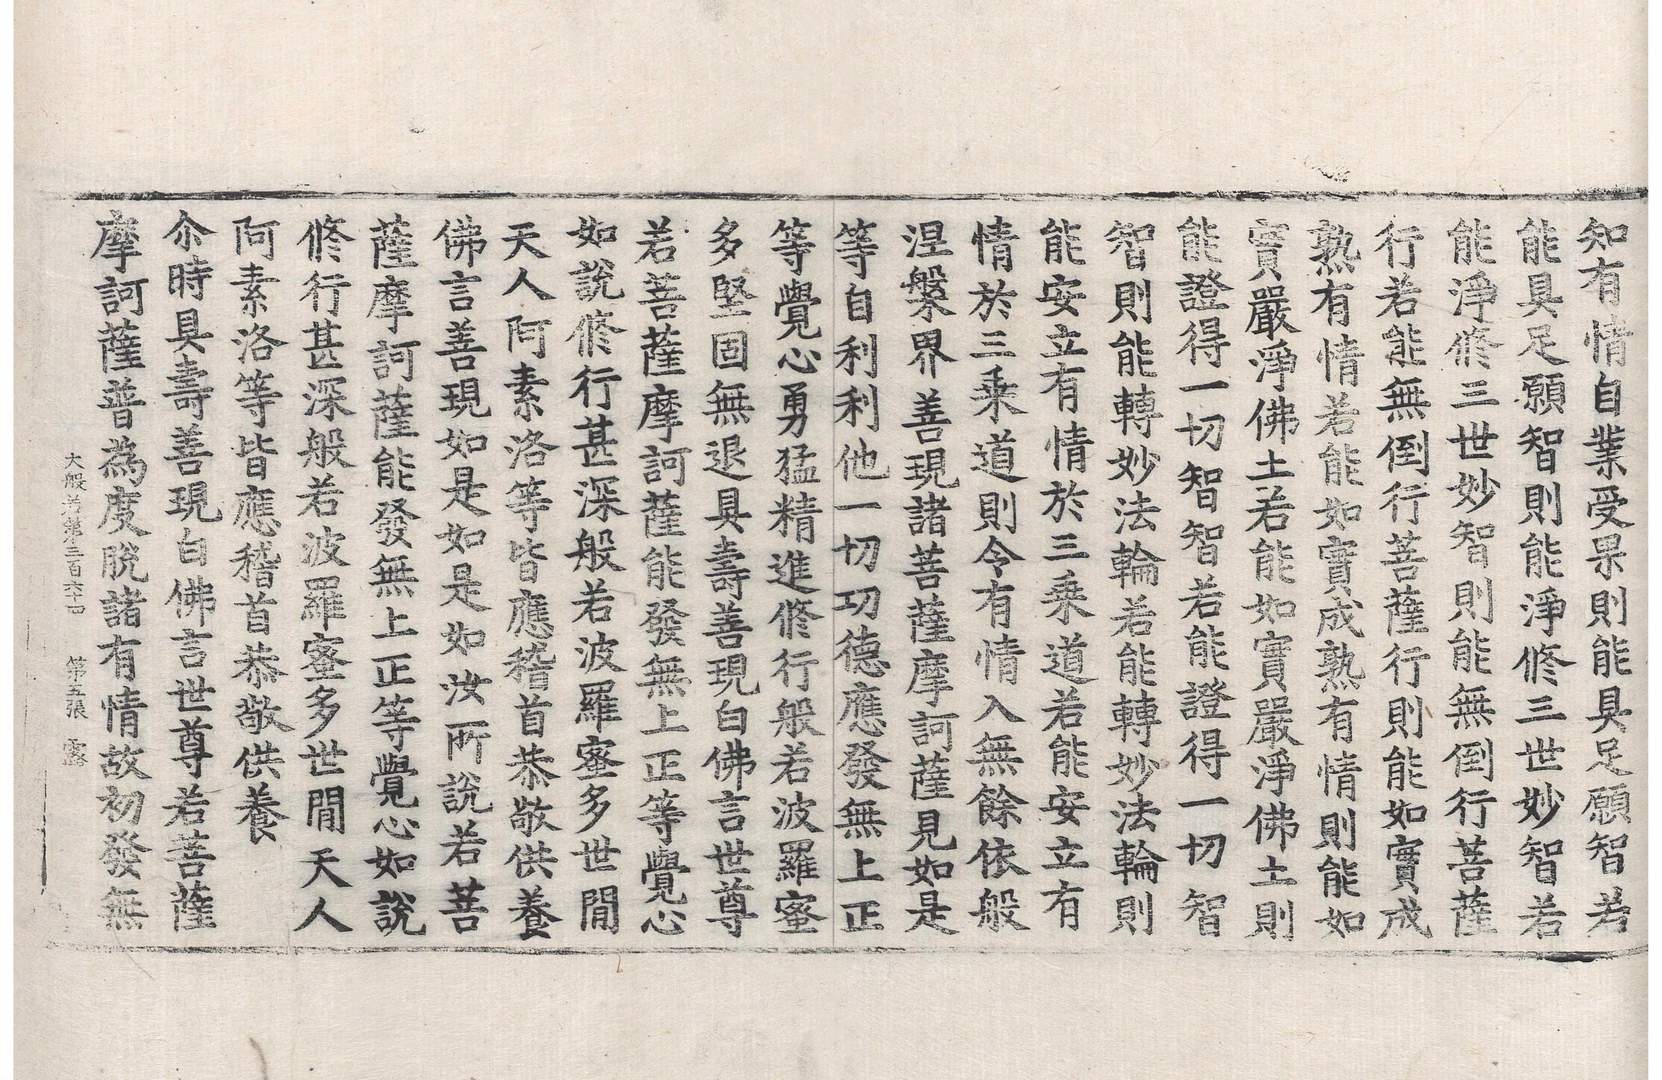 知有情自業受果則能具足願智若
能具足願智則能淨修三世妙智若
能淨修三世妙智則能無倒行菩薩
行若能無倒行菩薩行則能如實成
熟有情若能如實成熟有情則能如
實嚴淨佛土若能如實嚴淨佛土則
能證得一切智智若能證得一切智
智則能轉妙法輪若能轉妙法輪則
能安立有情於三乘道若能安立有
情於三乘道則令有情入無餘依般
涅槃界善現諸菩薩摩訶薩見如是
等自利利他一切功德應發無上正
等覺心勇猛精進修行般若波羅蜜
多堅固無退具壽善現白佛言世尊
若菩薩摩訶薩能發無上正等覺心
如說修行甚深般若波羅蜜多世間
天人阿素洛等皆應稽首恭敬供養
佛言善現如是如是如汝所說若菩
薩摩訶薩能發無上正等覺心如說
修行甚深般若波羅蜜多世間天人
阿素洛等皆應稽首恭敬供養
尒時具壽善現白佛言世尊若菩薩
摩訶薩普為度脫諸有情故初發無
大般若第三百六十四 第五張 露